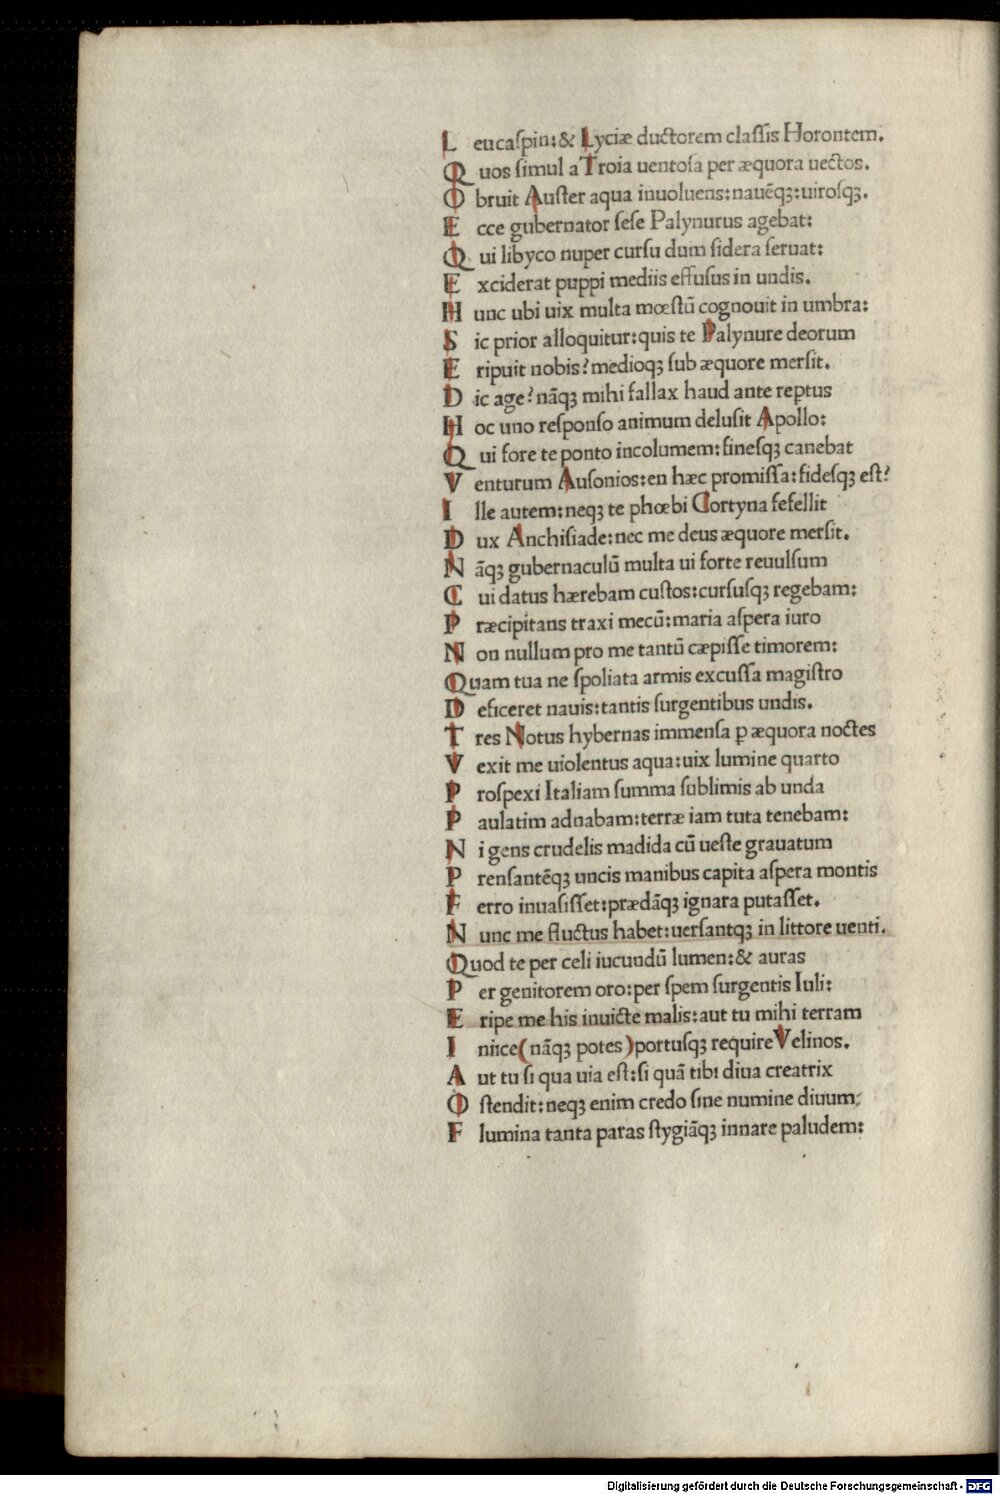 L eucaſpin:& Lyciæ ductorem claſſis Horontem.
Q uos ſimul a Troia uentoſa per æquora uectos.
O bruit Auſter aqua inuoluens:nauēqꝫ:uiroſqꝫ.
E cce gubernator ſeſe Palynurus agebat:
Q ui libyco nuper curſu dum ſidera ſeruat:
E xciderat puppi mediis effuſus in undis.
H unc ubi uix multa mœſtū cognouit in umbra:
S ic prior alloquitur:quis te Palynure deorum
E ripuit nobis?medioqꝫ ſub æquore merſit.
D ic age?nāqꝫ mihi fallax haud ante reptus
H oc uno reſponſo animum deluſit Apollo:
Q ui fore te ponto incolumem:fineſqꝫ canebat
V enturum Auſonios:en hæc promiſſa:fideſqꝫ eſt?
I lle autem:neqꝫ te phœbi Cortyna fefellit
D ux Anchiſiade:nec me deus æquore merſit.
N āqꝫ gubernaculū multa ui forte reuulſum
C ui datus hærebam cuſtos:curſuſqꝫ regebam:
P ræcipitans traxi mecū:maria aſpera iuro
N on nullum pro me tantū cæpiſſe timorem:
Quam tua ne ſpoliata armis excuſſa magiſtro
D eficeret nauis:tantis ſurgentibus undis.
T res Notus hybernas immenſa ꝑ æquora noctes
V exit me uiolentus aqua:uix lumine quarto
P roſpexi Italiam ſumma ſublimis ab unda
P aulatim adnabam:terræ iam tuta tenebam:
N i gens crudelis madida cū ueſte grauatum
P renſantēqꝫ uncis manibus capita aſpera montis
F erro inuaſiſſet:prædāqꝫ ignara putaſſet.
N unc me fluctus habet:uerſantqꝫ in littore uenti.
Quod te per celi iucundū lumen:& auras
P er genitorem oro:per ſpem ſurgentis Iuli:
E ripe me his inuicte malis:aut tu mihi terram
I niice(nāqꝫ potes)portuſqꝫ require Velinos.
A ut tu ſi qua uia eſt:ſi quā tibi diua creatrix
O ſtendit:neqꝫ enim credo ſine numine diuum:
F lumina tanta paras ſtygiāqꝫ innare paludem:
Digitalisierung gefördert durch die Deutsche Forschungsgemeinschaft - DFG